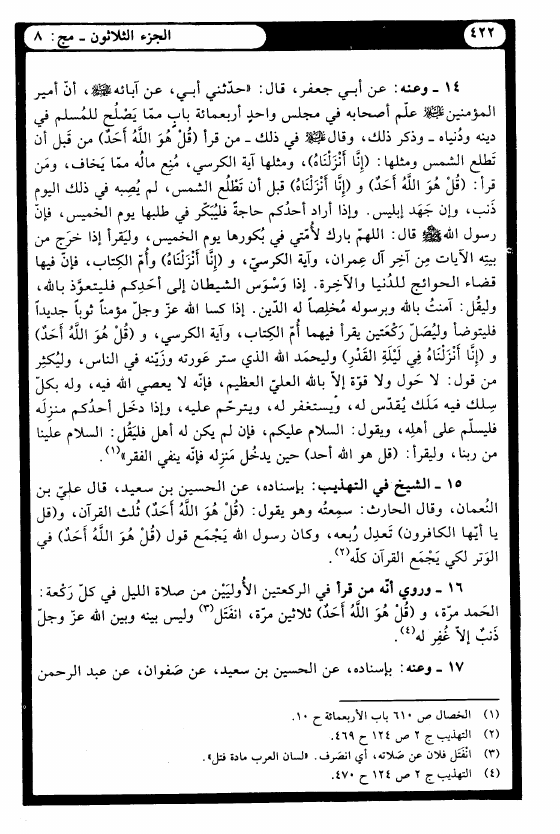 ٤٢٢
الجزء الثلاثون ـ مج: ٨
١٤ ـ وعنه: عن أبي جعفر، قال: «حدّثني أبي، عن آبائه، أنّ أمير
المؤمنين علّم أصحابه في مجلس واحدٍ أربعمائة بابٍ ممّا يَصْلُح للمُسلم في
دينه ودُنياه ـ وذكر ذلك، وقال في ذلك ـ من قرأ (قُلْ هُوَ اللَّهُ أَحَدٌ) من قَبل أن
تَطلع الشمس ومثلها: (إِنَّا أَنْزَلْنَاهُ)، ومثلها آية الكرسي، مُنِع مالُه ممّا يَخاف، ومَن
قرأ: (قُلْ هُوَ اللَّهُ أَحَدٌ) و (إِنَّا أَنْزَلْنَاهُ) قبل أن تَطْلُع الشمس، لم يُصِبه في ذلك اليوم
ذَنب، وإن جَهَد إبليس. وإذا أراد أحدُكم حاجةً فليُبَكّر في طلبها يوم الخميس، فإنّ
رسول الله قال: اللهمّ بارك لأُمّتي في بُكورها يوم الخميس، وليَقرأ إذا خرَج من
بيتِه الآيات مِن آخر آل عِمران، وآية الكرسيّ، و (إِنَّا أَنْزَلْنَاهُ) وأُم الكِتاب، فإنّ فيها
قضاء الحوائج للدُنيا والآخِرة. إذا وَسْوَس الشيطان إلى أحَدِكم فليتعوَّذ بالله،
وليقُل: آمنتُ بالله وبرسوله مُخلِصاً له الدّين. إذا كسا الله عزّ وجلّ مؤمناً ثوباً جديداً
فليتوضأ وليُصَلّ رَكْعَتين يقرأ فيهما أُمّ الكِتاب، وآية الكرسي، و (قُلْ هُوَ اللَّهُ أَحَدٌ)
و (إِنَّا أَنْزَلْنَاهُ فِي لَيْلَةِ القَدْرِ) وليحمَد الله الذي ستر عَورته وزَيّنه في الناس، وليُكثِر
من قول: لا حَول ولا قوّة إلاّ بالله العليّ العظيم، فإنّه لا يعصي الله فيه، وله بكلّ
سِلك فيه مَلَك يُقدّس له، ويستغفر له، ويترحّم عليه، وإذا دخَل أحدُكم منزِلَه
فليسلّم على أهلِه، ويقول: السلام عليكم، فإن لم يكن له أهل فليَقُل: السلام علينا
من ربنا، وليقرأ: (قل هو الله أحد) حين يدخُل مَنزِله فإنّه ينفي الفقر»(١).
١٥ ـ الشيخ في التهذيب: بإسناده، عن الحسين بن سعيد، قال عليّ بن
النُعمان، وقال الحارث: سمِعتُه وهو يقول: (قُلْ هُوَ اللَّهُ أَحَدٌ) ثُلث القرآن، و(قل
يا أيّها الكافرون) تَعدِل رُبعه، وكان رسول الله يَجْمَع قول (قُلْ هُوَ اللَّهُ أَحَدٌ) في
الوَتر لكي يَجْمَع القرآن كلّه(٢).
١٦ ـ وروي أنّه من قرأ في الركعتين الأُوليَيْن من صلاة الليل في كلّ رَكْعة:
الحَمد مرّة، و (قُلْ هُوَ اللَّهُ أَحَدٌ) ثلاثين مرّة، انفَتَل(٣) وليس بينه وبين الله عزّ وجلّ
ذَنبٌ إلاّ غُفِر له(٤).
١٧ ـ وعنه: بإسناده، عن الحسين بن سعيد، عن صَفوان، عن عبد الرحمن
(١) الخصال ص ٦١٠ باب الأربعمائة ح ١٠.
(٢) التهذيب ج ٢ ص ١٢٤ ح ٤٦٩.
(٣) انْفَتَل فلان عن صَلاته، أي انصَرف. «لسان العرب مادة فتل».
(٤) التهذيب ج ٢ ص ١٢٤ ح ٤٧٠.